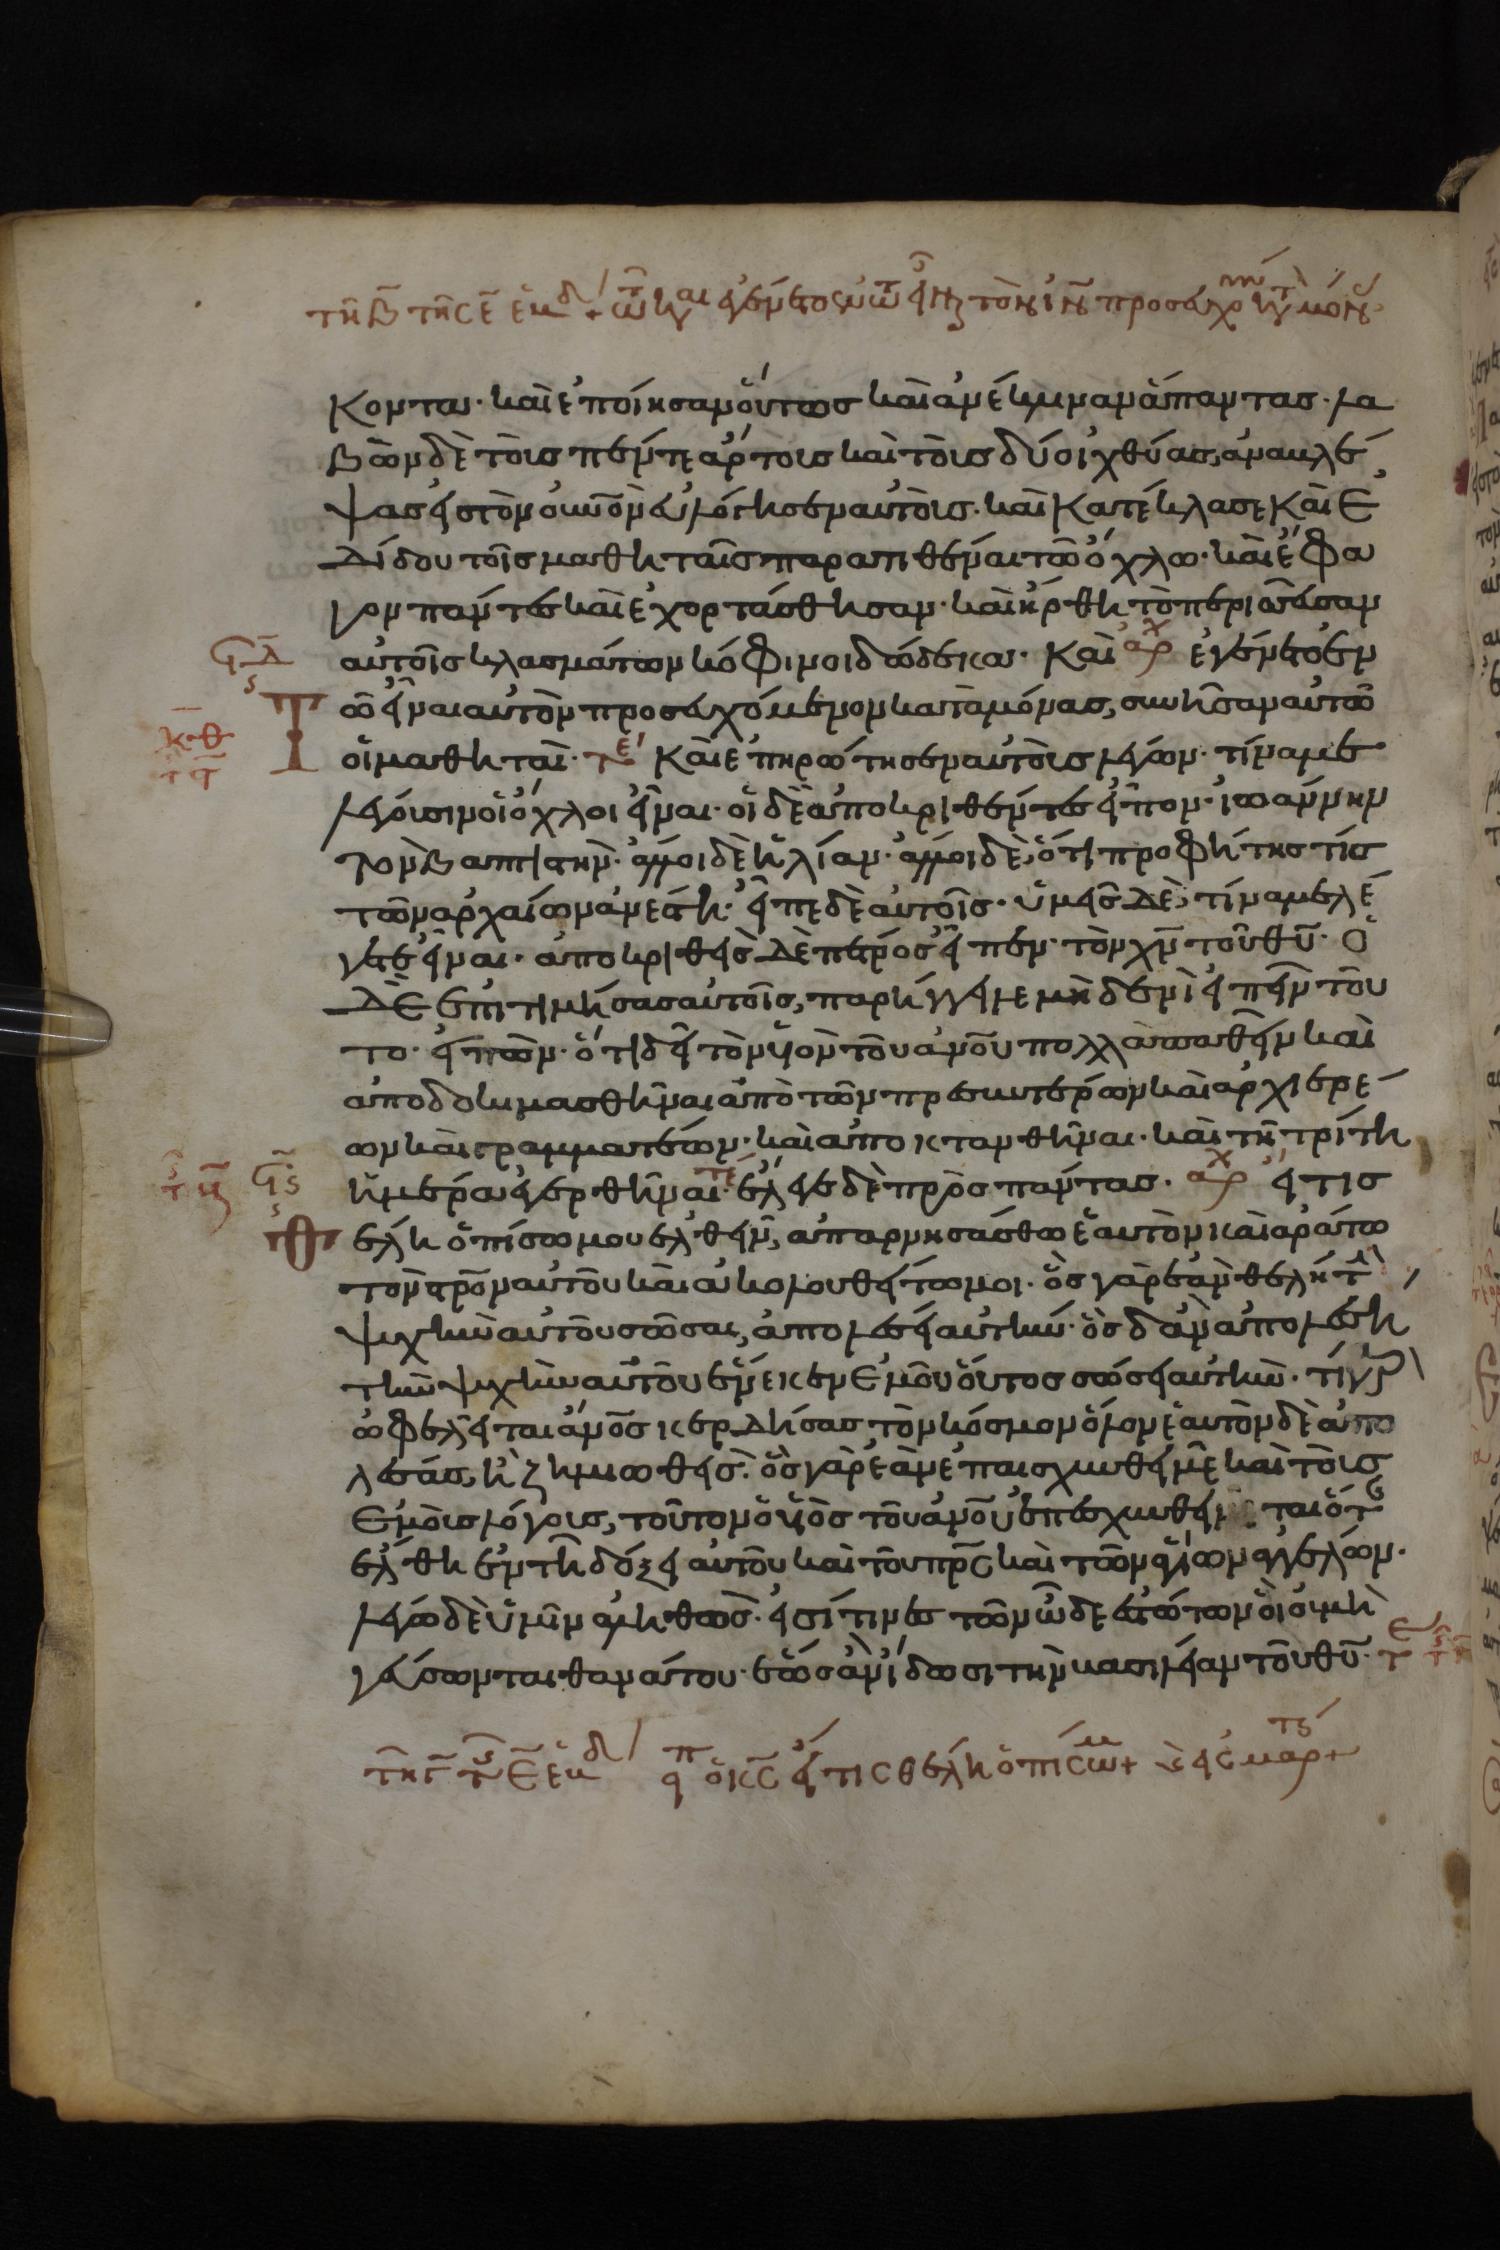 κοντα· καὶ ἐποίησαν οὕτως καὶ ἀνέκλιναν ἅπαντας· λα
βὼν δὲ τοὺς πέντε ἄρτους καὶ τοὺς δύο ἰχθύας, ἀναβλέ
ψας εἰς τὸν οὐνὸν εὐλόγησεν αὐτοὺς· καὶ κατέκλασε καὶ ἐ
δίδου τοῖς μαθηταῖς παρατιθέναι τῶ ὄχλω· καὶ ἔφα
γον πάντες καὶ ἐχορτάσθησαν· καὶ ἤρθη τὸ περισσεῦσαν
αὐτοῖς κλασμάτων κόφινοι δώδεκα· Καὶ ἀρχ ἐγένετο ἐν
τῶ εἶναι αὐτὸν προσευχόμενον καταμόνας, συνῆσαν αὐτῶ
οἱ μαθηταὶ· Καὶ ἐπηρώτησεν αὐτοὺς λέγων· τίνα με
λέγουσιν οἱ ὄχλοι εἶναι· οἱ δὲ ἀποκριθέντες εἶπον· ἰωάννην
τὸν βαπτιστὴν· ἄλλοι δὲ ἠλίαν· ἄλλοι δὲ, ὅτι προφήτης τίς
τῶν ἀρχαίων ἀνέστη· εἶπε δὲ αὐτοῖς· ὑμεῖς δὲ, τίνα με λέ
γετε εἶναι· ἀποκριθεὶς δὲ πέτρος εἶπεν· τὸν χν τοῦ θυ· ὁ
δὲ ἐπιτιμήσας αὐτοῖς, παρήγγειλε μηδενὶ εἰπεῖν τοῦ
το· εἰπὼν· ὅτι δεῖ τὸν υἱὸν τοῦ ανου πολλὰ παθεῖν καὶ
ἀποδοκιμασθῆναι ἀπὸ τῶν πρεσβυτέρων καὶ ἀρχιερέ
ων καὶ γραμματέων· καὶ ἀποκτανθῆναι· καὶ τῆ τρίτη
ἡμέρα ἐγερθῆναι· ἔλεγε δὲ πρὸς πάντας· ἀρχ εἴ τις
θέλει ὀπίσω μου ἐλθεῖν, ἀπαρνησάσθω ἑαυτὸν καὶ ἀράτω
τὸν στρον αὐτοῦ καὶ ἀκολουθείτω μοι· ὃς γὰρ ἐὰν θέλη τ
ψυχὴν αὐτοῦ σῶσαι, ἀπολέσει αὐτὴν· ὃς δ ἂν ἀπολέση
τὴν ψυχὴν αὐτοῦ ἕνεκεν ἐμοῦ οὗτος σώσει αὐτὴν· τί γρ
ὠφελεῖται ανος κερδήσας τὸν κόσμον ὅλον ἑαυτὸν δὲ ἀπο
λέσας, ἢ ζημιωθεὶς· ὃς γὰρ ἐὰν ἐπαισχυνθῆ με καὶ τοὺς
ἐμοὺς λόγους, τοῦτον ὁ υἱὸς τοῦ ανου ἐπαισχυνθή ται ὅτ
ἔλθη ἐν τῆ δόξει αὐτοῦ καὶ τοῦ πρς καὶ τῶν ἁγίων ἀγγέλων·
λέγω δὲ ὑμῖν ἀληθῶς· εἰσί τινες τῶν ὧδε ἑστώτων οἳ οὐ μὴ
γεύσωνται θανάτου· ἕως ἂν ἴδωσι τὴν βασιλείαν τοῦ θυ·